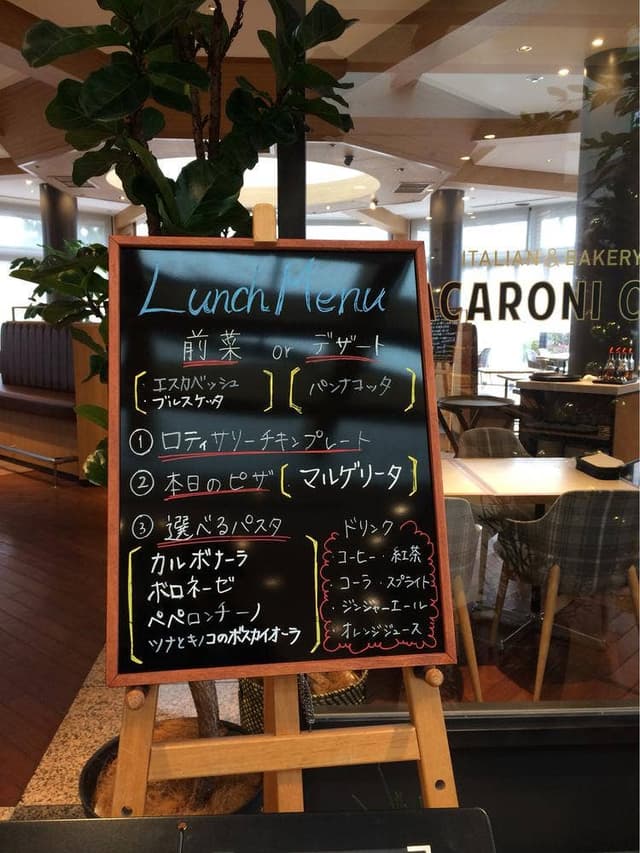 Lunch Menu
前菜 or デザート
・エスカベッシュ
・ブルスケッタ
パンナコッタ
① ロティサリーチキンプレート
② 本日のピザ マルゲリータ
③ 選べるパスタ
カルボナーラ
ボロネーゼ
ペペロンチーノ
ツナとキノコのボスカイオーラ
ドリンク
・コーヒー・紅茶
・コーラ・スプライト
・ジンジャーエール
・オレンジジュース
ITALIAN & BAKERY
ACARONI